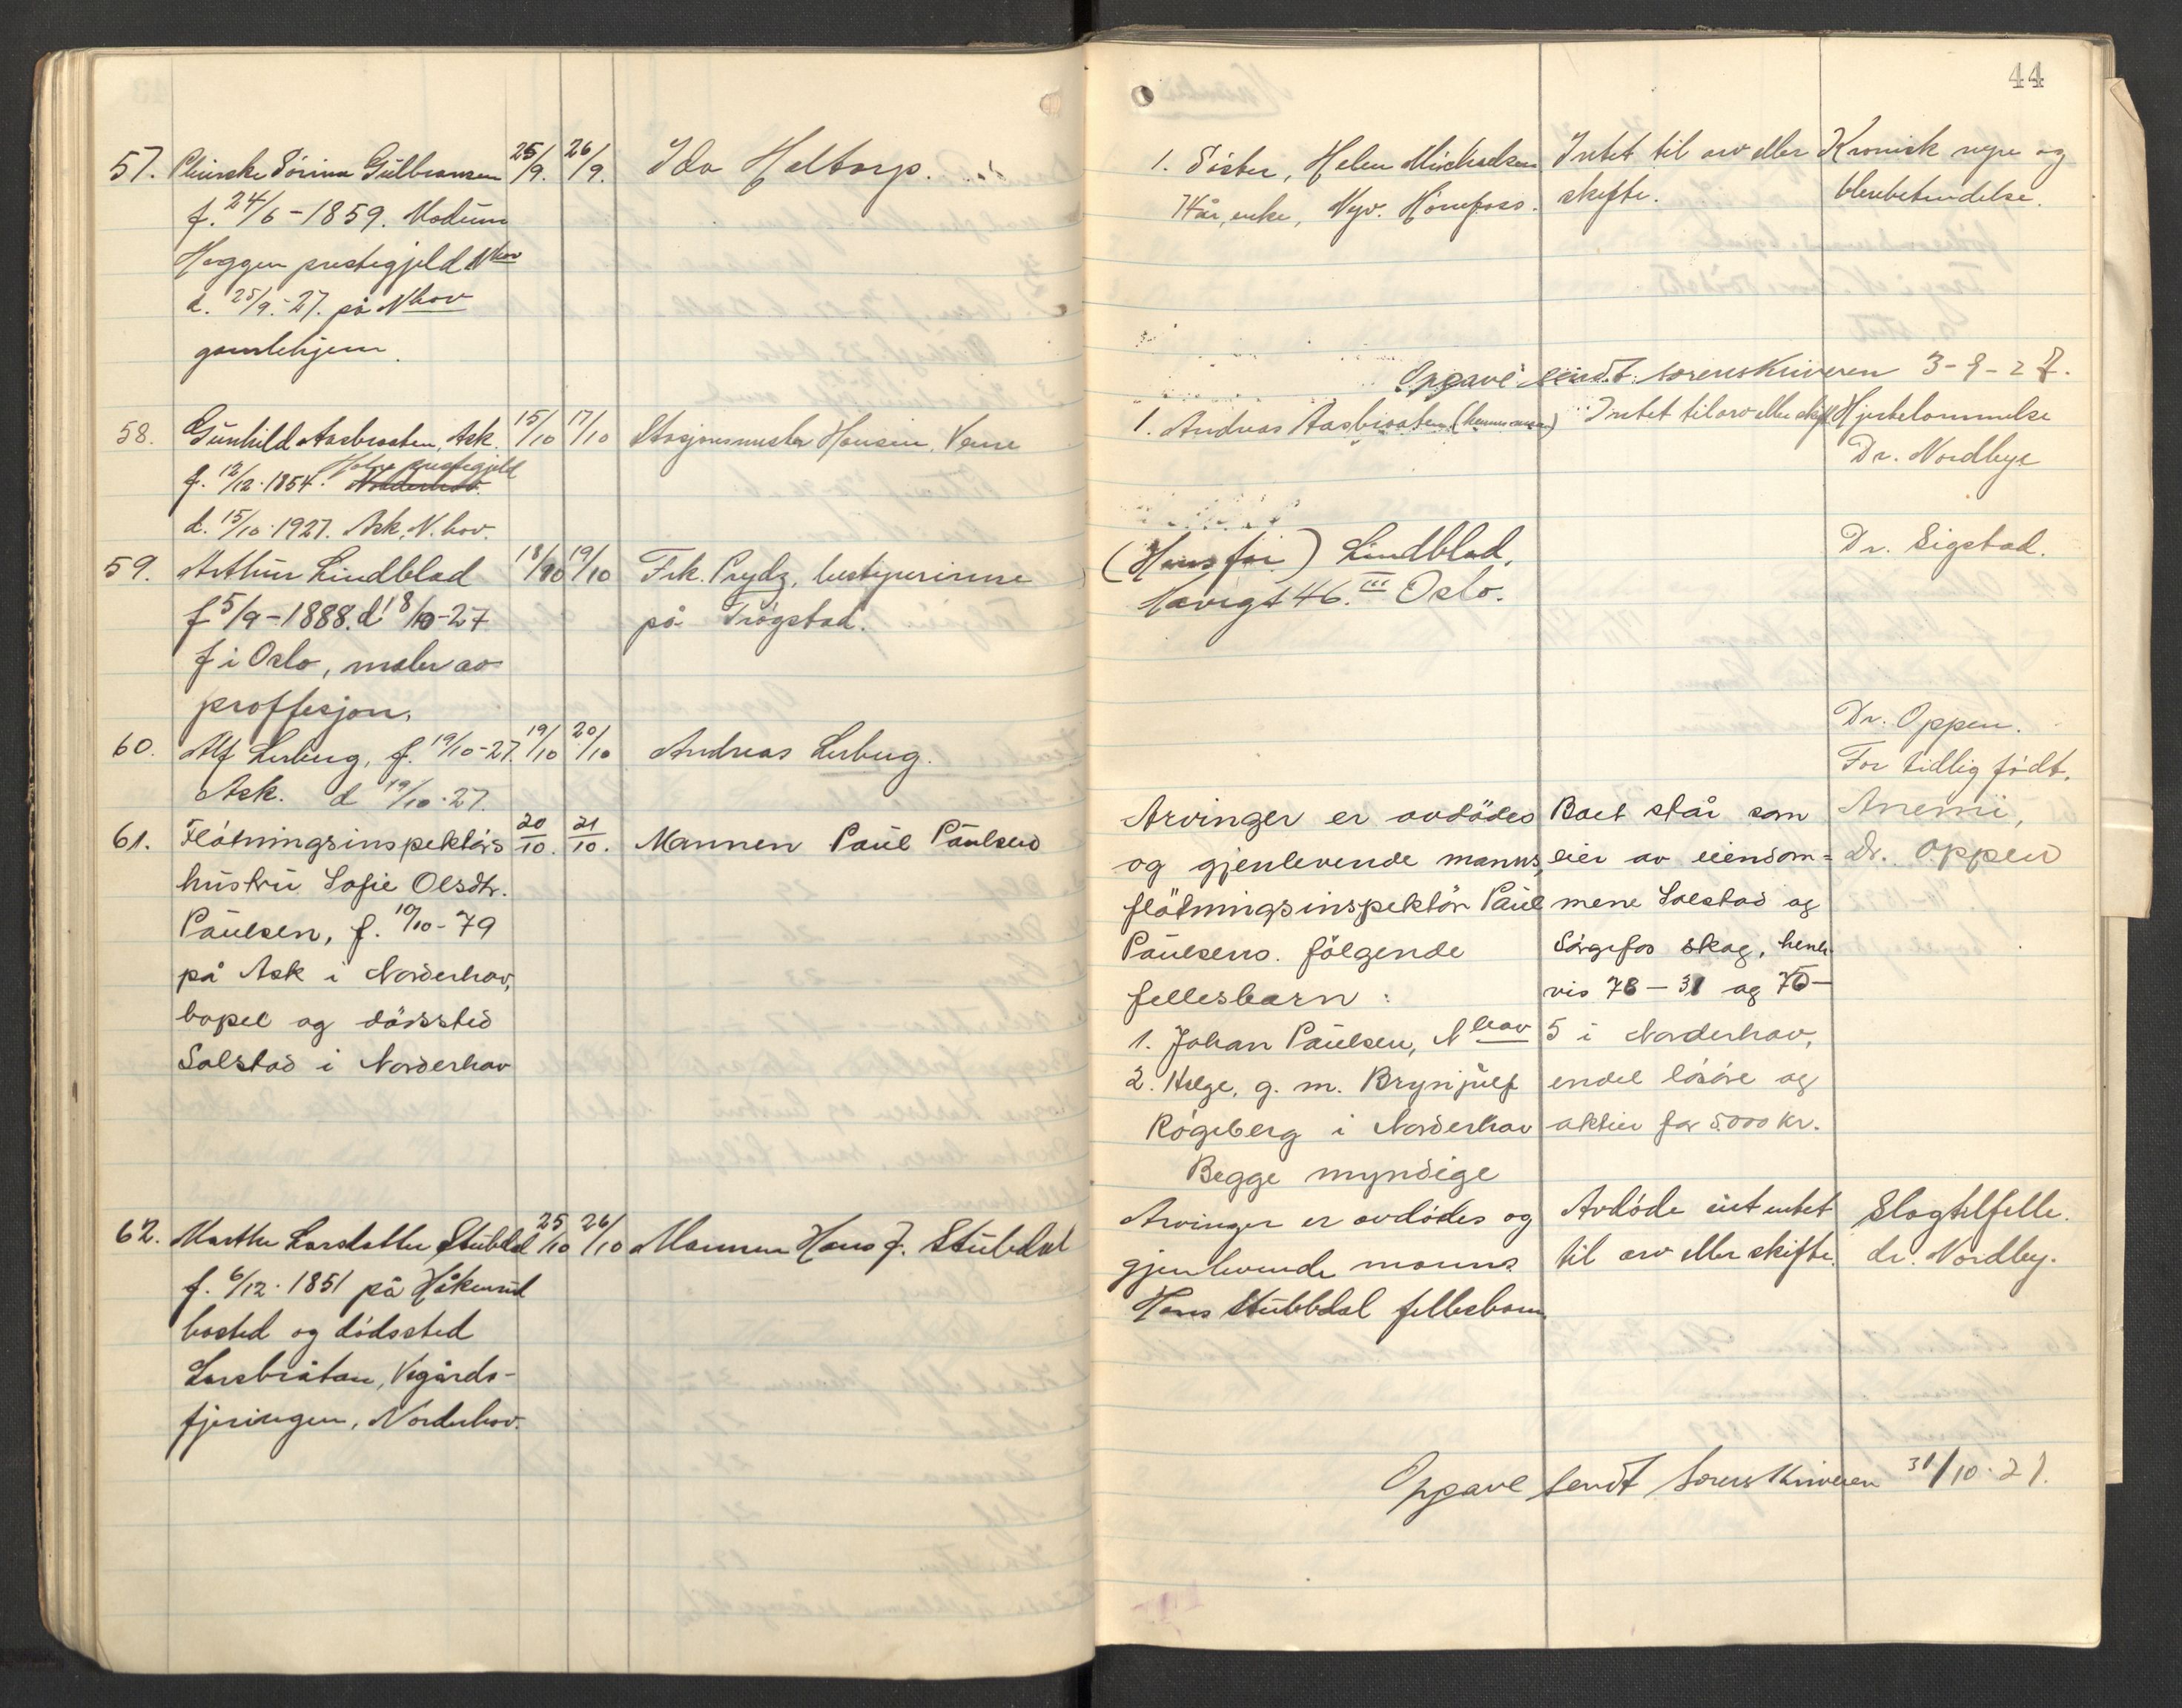 44
57. Pleierske Sørine Gulbransen 25/9. 26/9. Ida Heltorp.
f. 24/6-1859. Modum
Heggen prestegjeld Nhov
d. 25/9.-27. på Nhov
gamlehjem.
58. Gunhild Aasbraaten, Ask. 15/10 17/10 Stasjonsmester Hansen, Veme
f. 12/12.1854. Hole prestegjeld Norderhov.
d. 15/10.1927. Ask, N.hov.
59. Arthur Lindblad 18/10 19/10 Frk. Prydz, bestyrerinne
f 5/9-1888. d 18/10-27 på Trøgstad.
f i Oslo, maler av
proffesjon.
60. Alf Lerberg, f. 19/10-27. 19/10 20/10 Andreas Lerberg.
Ask. d 19/10.27.
61. Fløtningsinspektørs 20/10. 21/10. Mannen Paul Paulsen
hustru Sofie Olsdtr.
Paulsen, f. 10/10-79
på Ask i Norderhov,
bopel og dødssted
Solstad i Norderhov
62. Marthe Larsdatter Stubdal 25/10 26/10 Mannen Hans J. Stubdal
f. 6/12.1851 på Håkenrud
bosted og dødssted
Larsbråtan, Vegårds-
fjeringen, Norderhov.
1. Søster, Helen Mickelsen Intet til arv eller Kronisk nyre og
74 år, enke, Nyv. Hønefoss. skifte. blerebetendelse.
Opgave sendt sorenskriveren 3-9-27.
1. Andreas Aasbraaten (hennes mann) Intet til arv eller skifte Hjertelammelse
Dr. Nordbye
(Hans far) Lindblad, Dr. Sigstad.
Navigt 46. III Oslo.
Dr. Oppen.
For tidlig født.
Arvinger er avdødes Boet står som Anemi,
og gjenlevende manns, eier av eiendom= Dr. Oppen
fløtningsinspektør Paul mene Solstad og
Paulsens. følgende Sørgefos skog, hen-
fellesbarn: vis 78-31 og 70-
1. Johan Paulsen, Nhov 5 i Norderhov,
2. Helge, g. m. Brynjulf endel løsøre og
Røgeberg i Norderhov aktier for 5000 kr.
Begge myndige
Arvinger er avdødes og Avdøde eiet intet Slagtilfelle.
gjenlevende manns til arv eller skifte. dr. Nordby.
Hans Stubbdal fellesbarn
Opgave sendt Sorenskriveren 31/10.27.